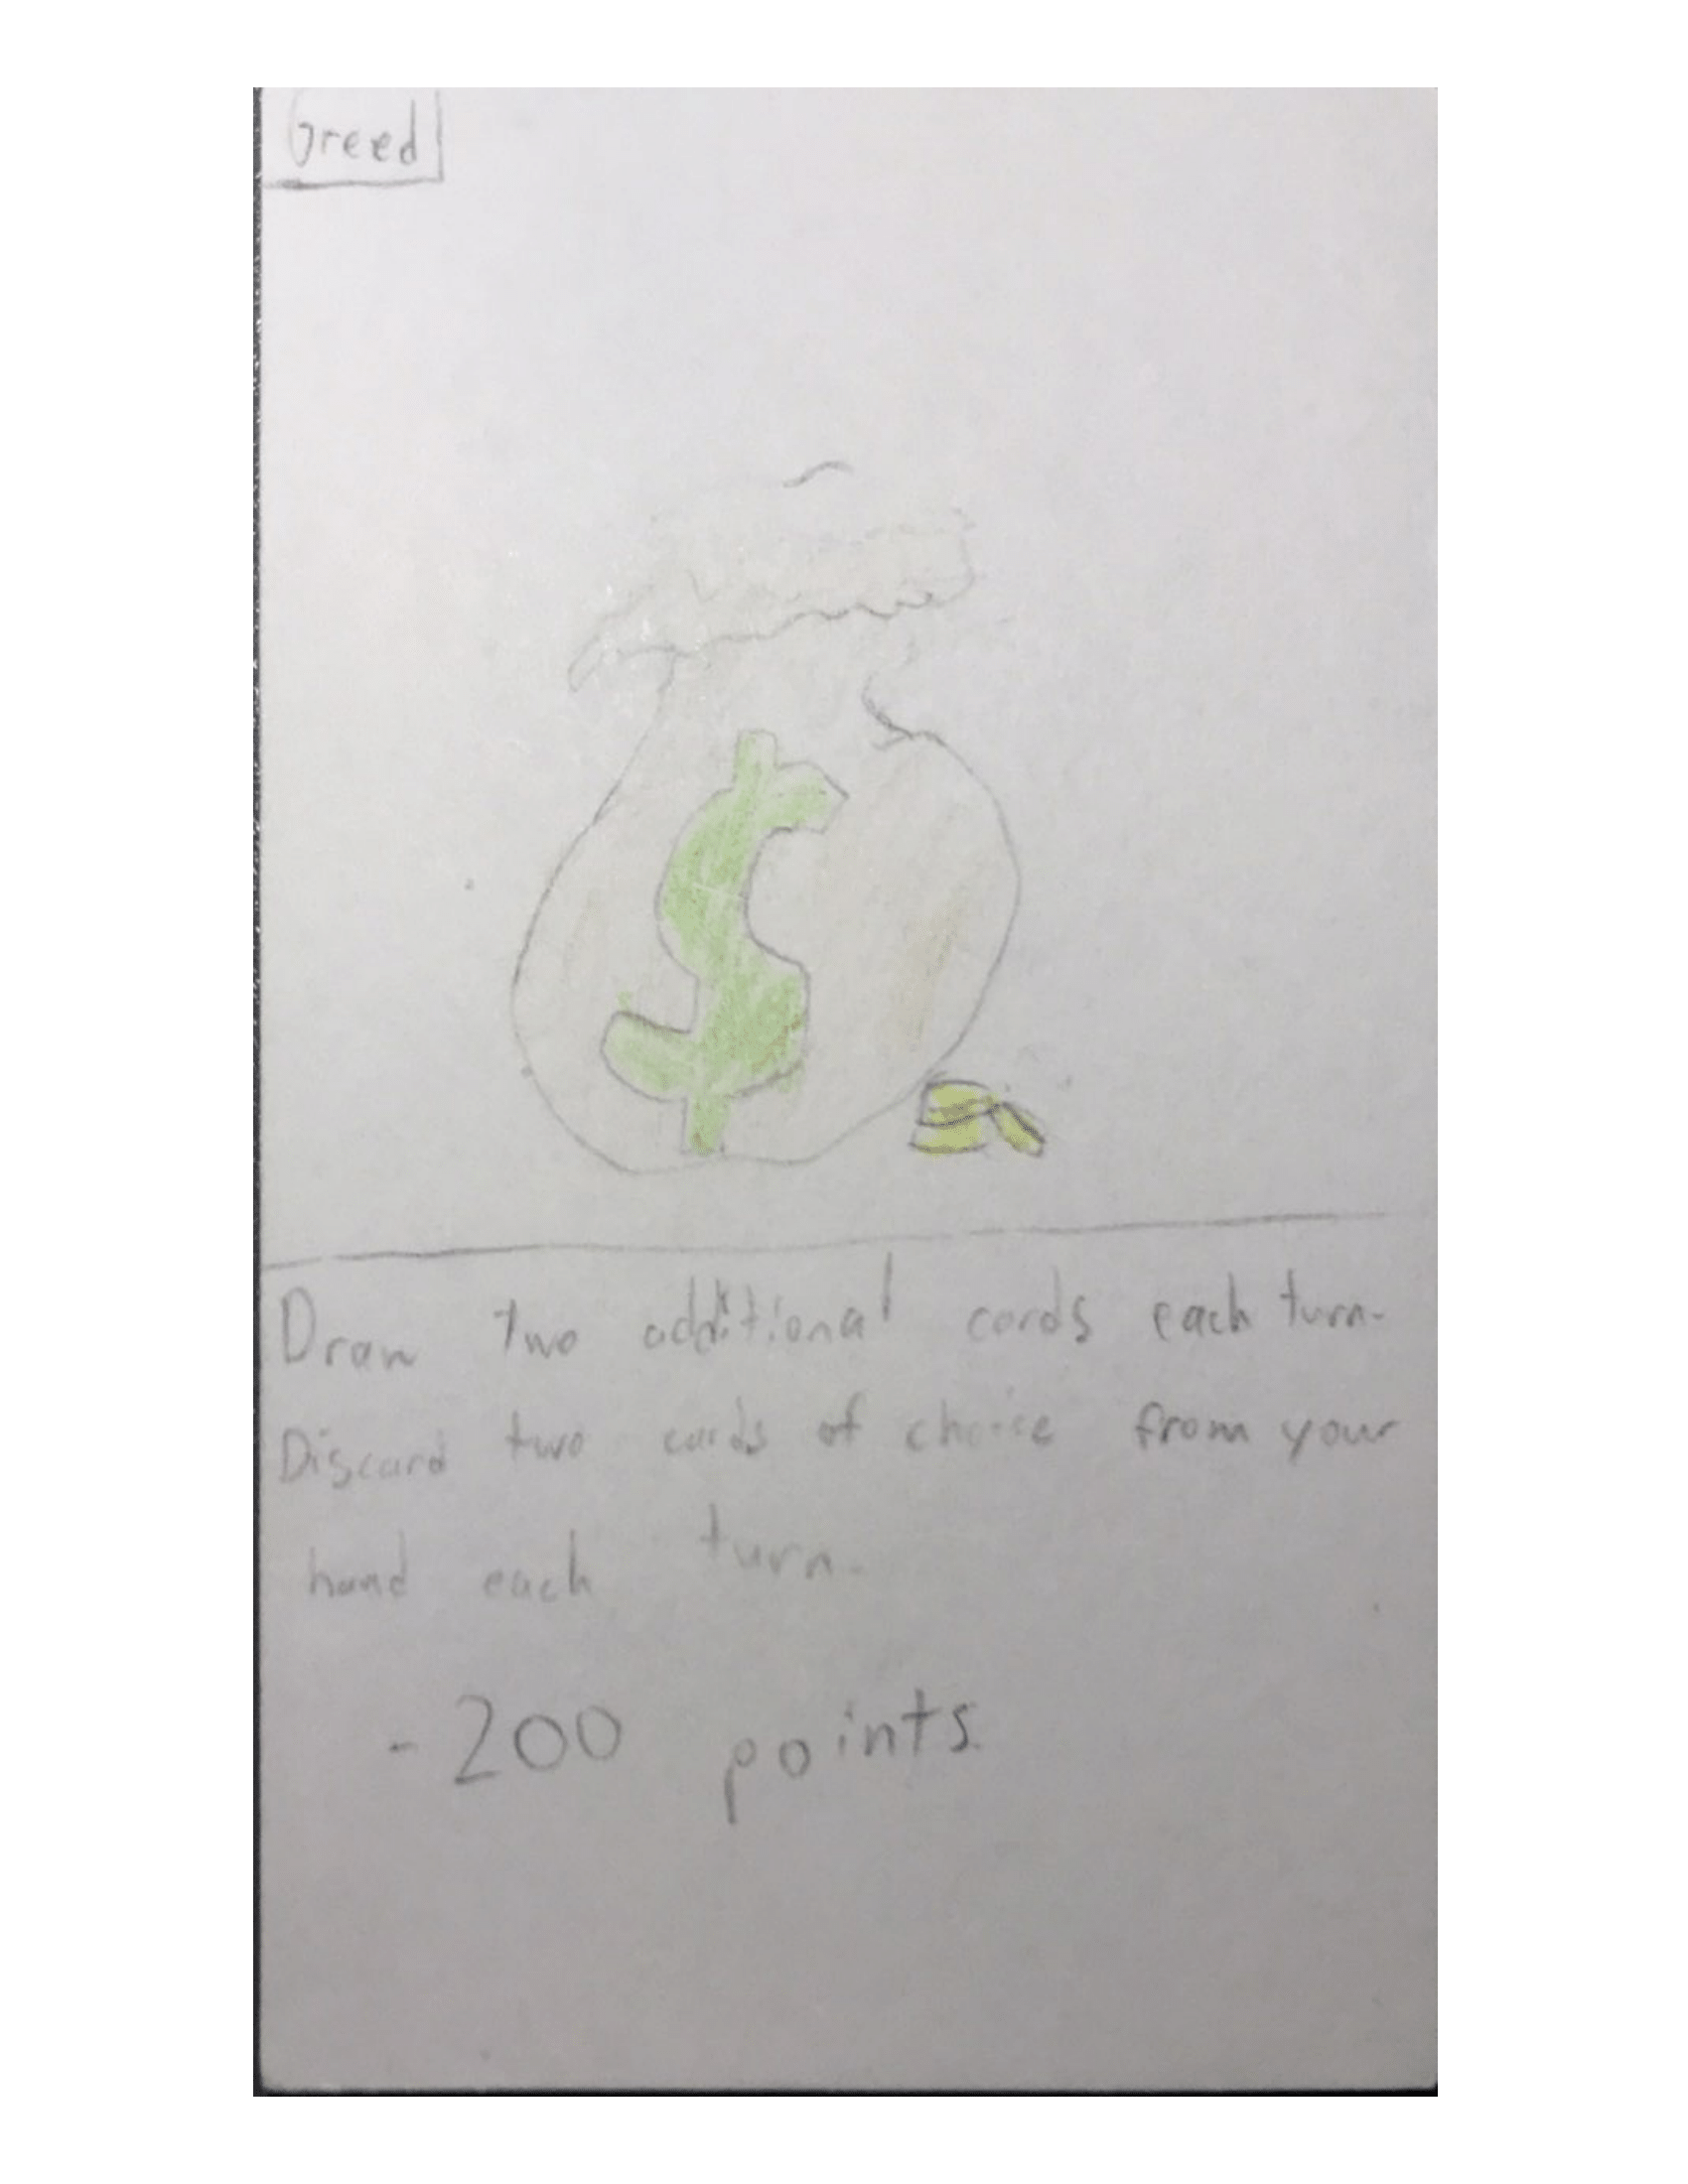 Greed
$
Draw two additional cards each turn.
Discard two cards of choice from your
hand each turn.
-200 points